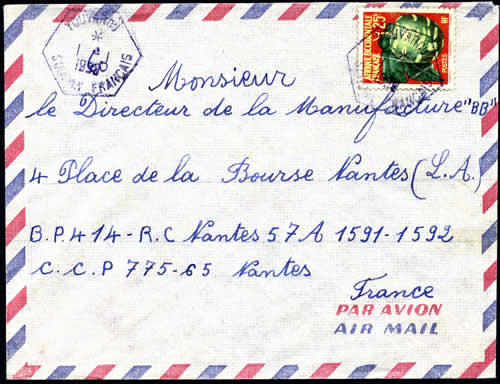 1958
SOUDAN FRANÇAIS
25F
AFRIQUE OCCIDENTALE
FRANÇAISE
POSTES
RF
Monsieur
le Directeur de la Manufacture "BB"
4 Place de la Bourse Nantes (L.A.)
B.P. 414 - R.C Nantes 57A 1591-1592
C.C.P 775-65 Nantes
France
PAR AVION
AIR MAIL